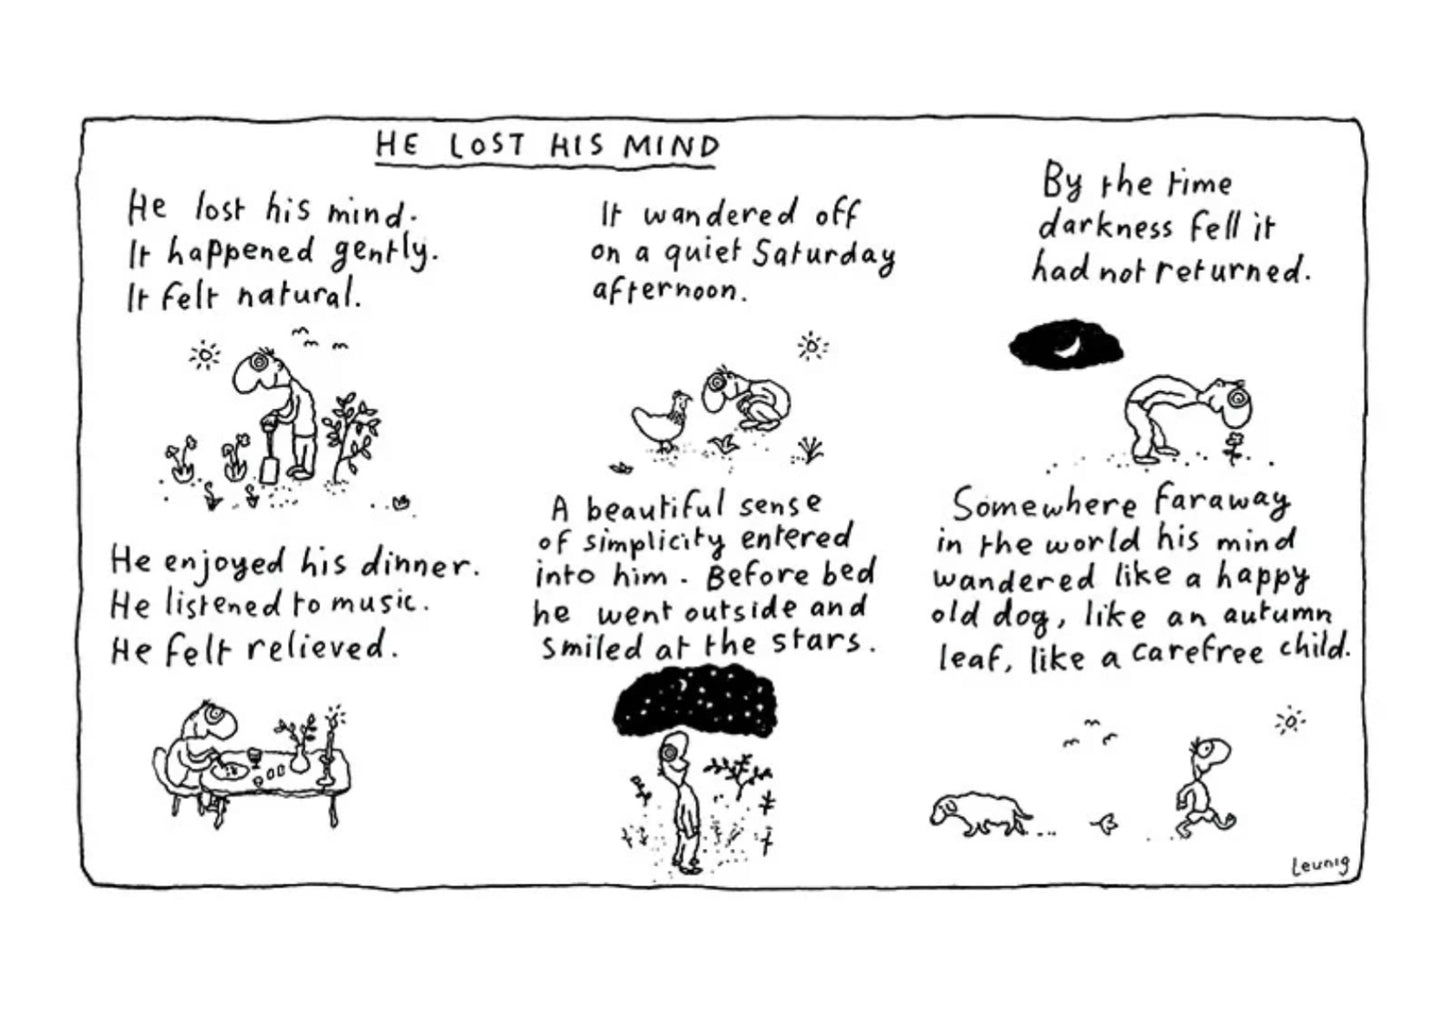 HE LOST HIS MIND
He lost his mind.
It happened gently.
It felt natural.
It wandered off
on a quiet Saturday
afternoon.
By the time
darkness fell it
had not returned.
He enjoyed his dinner.
He listened to music.
He felt relieved.
A beautiful sense
of simplicity entered
into him. Before bed
he went outside and
smiled at the stars.
Somewhere faraway
in the world his mind
wandered like a happy
old dog, like an autumn
leaf, like a carefree child.
Leunig